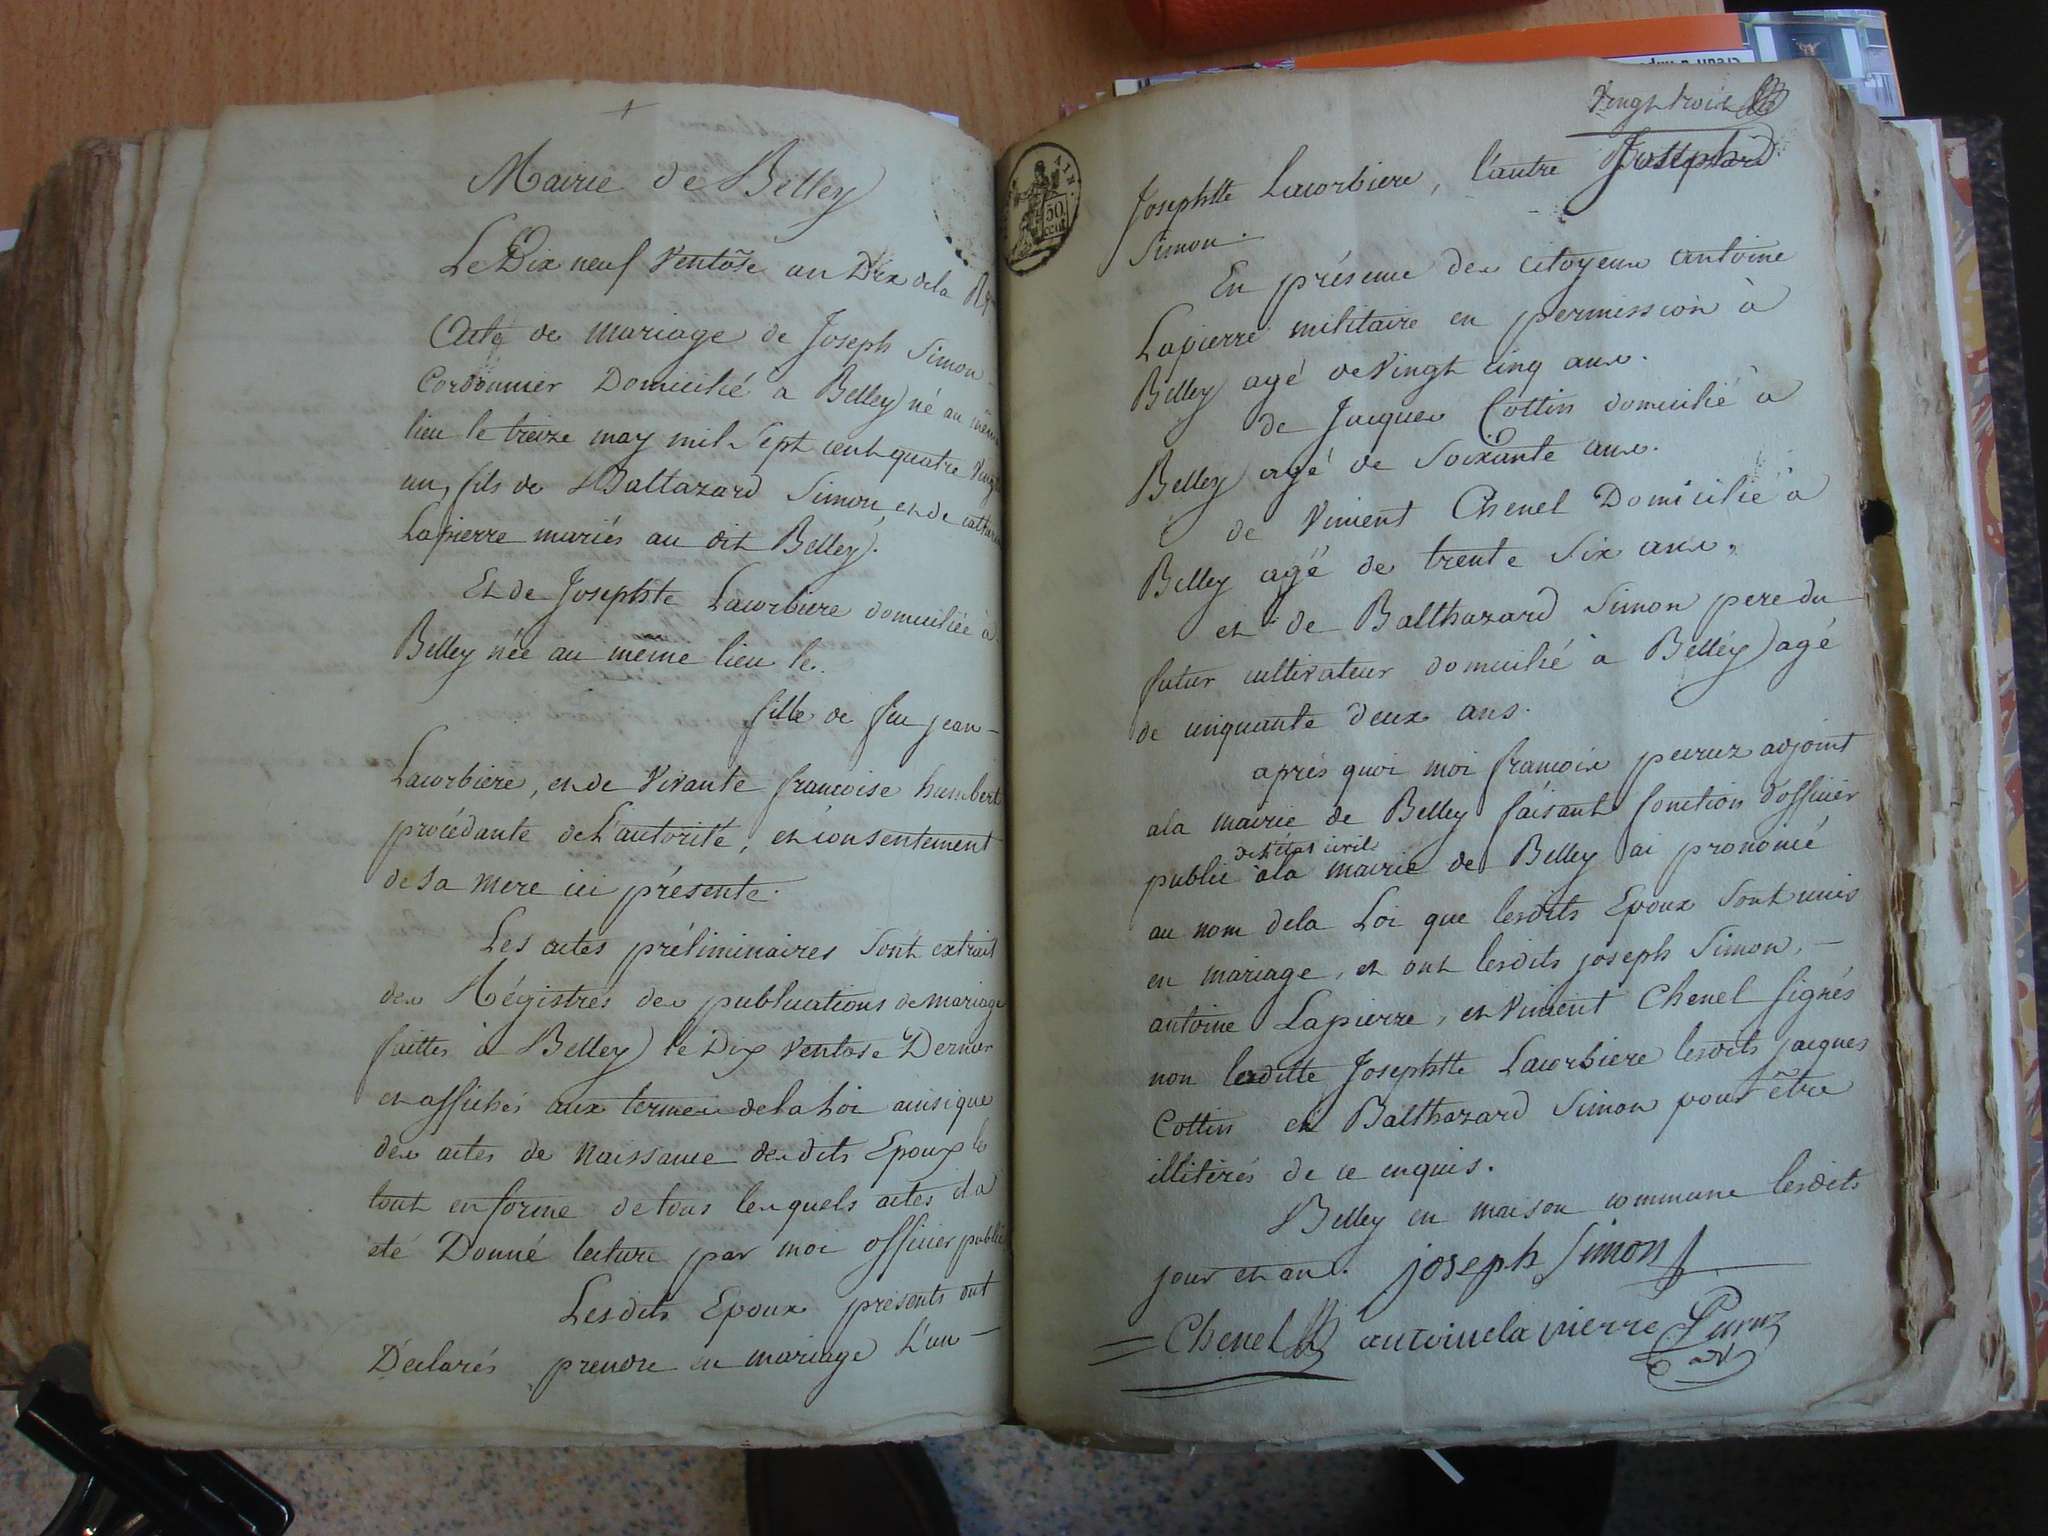 Mairie de Belley
Le Dix neuf Ventose an Dix de la Rép
Acte de mariage de Joseph Simon
Cordonnier Domicilié a Belley né au même
lieu le treize may mil Sept cent quatre Vingt
un, fils de Baltazard Simon, et de catherine
Lapierre mariés au dit Belley.
Et de Josephte Lacorbiere domiciliée à
Belley née au même lieu le.
fille de feu jean
Lacorbiere, et de Vivante francoise humbert
procédante de L'autorité, et consentement
de sa mere ici présente.
Les actes préliminaires Sont extrait
des Régistres des publications de mariage
faittes à Belley le Dix Ventose Dernier
et affichés aux termes de la Loi ainsi que
des actes de Naissance desdits Epoux le
tout en forme de tous lesquels actes il a
eté Donné lecture par moi officier public
Lesdits Epoux presents ont
Déclarés prendre en mariage L'un
Vingt trois
Josephtte Lacorbiere, l'autre Joseph
Simon.
En présence des citoyens antoine
Lapierre militaire en permission à
Belley agé de Vingt cinq ans.
de Jacques Cottin domicilié à
Belley agé de Soixante ans.
de Vincent Chenel Domicilié à
Belley agé de trente Six ans,
et de Balthazard Simon pere du
futur cultivateur domicilié à Belley agé
de cinquante deux ans.
après quoi moi francois peruz adjoint
a la mairie de Belley faisant fonction d'officier
de l'état civil
public à la mairie de Belley ai prononcé
au nom de la Loi que lesdits Epoux Sont unis
en mariage, et ont lesdits joseph Simon,
antoine Lapierre, et Vincent Chenel Signés
non laditte Josephtte Lacorbiere lesdits jacques
Cottin et Balthazard Simon pour être
illitérés de ce enquis.
Belley en maison commune lesdits
jour et an. joseph Simon
Chenel antoine la pierre Peruz
adj
AIN.
50
cent